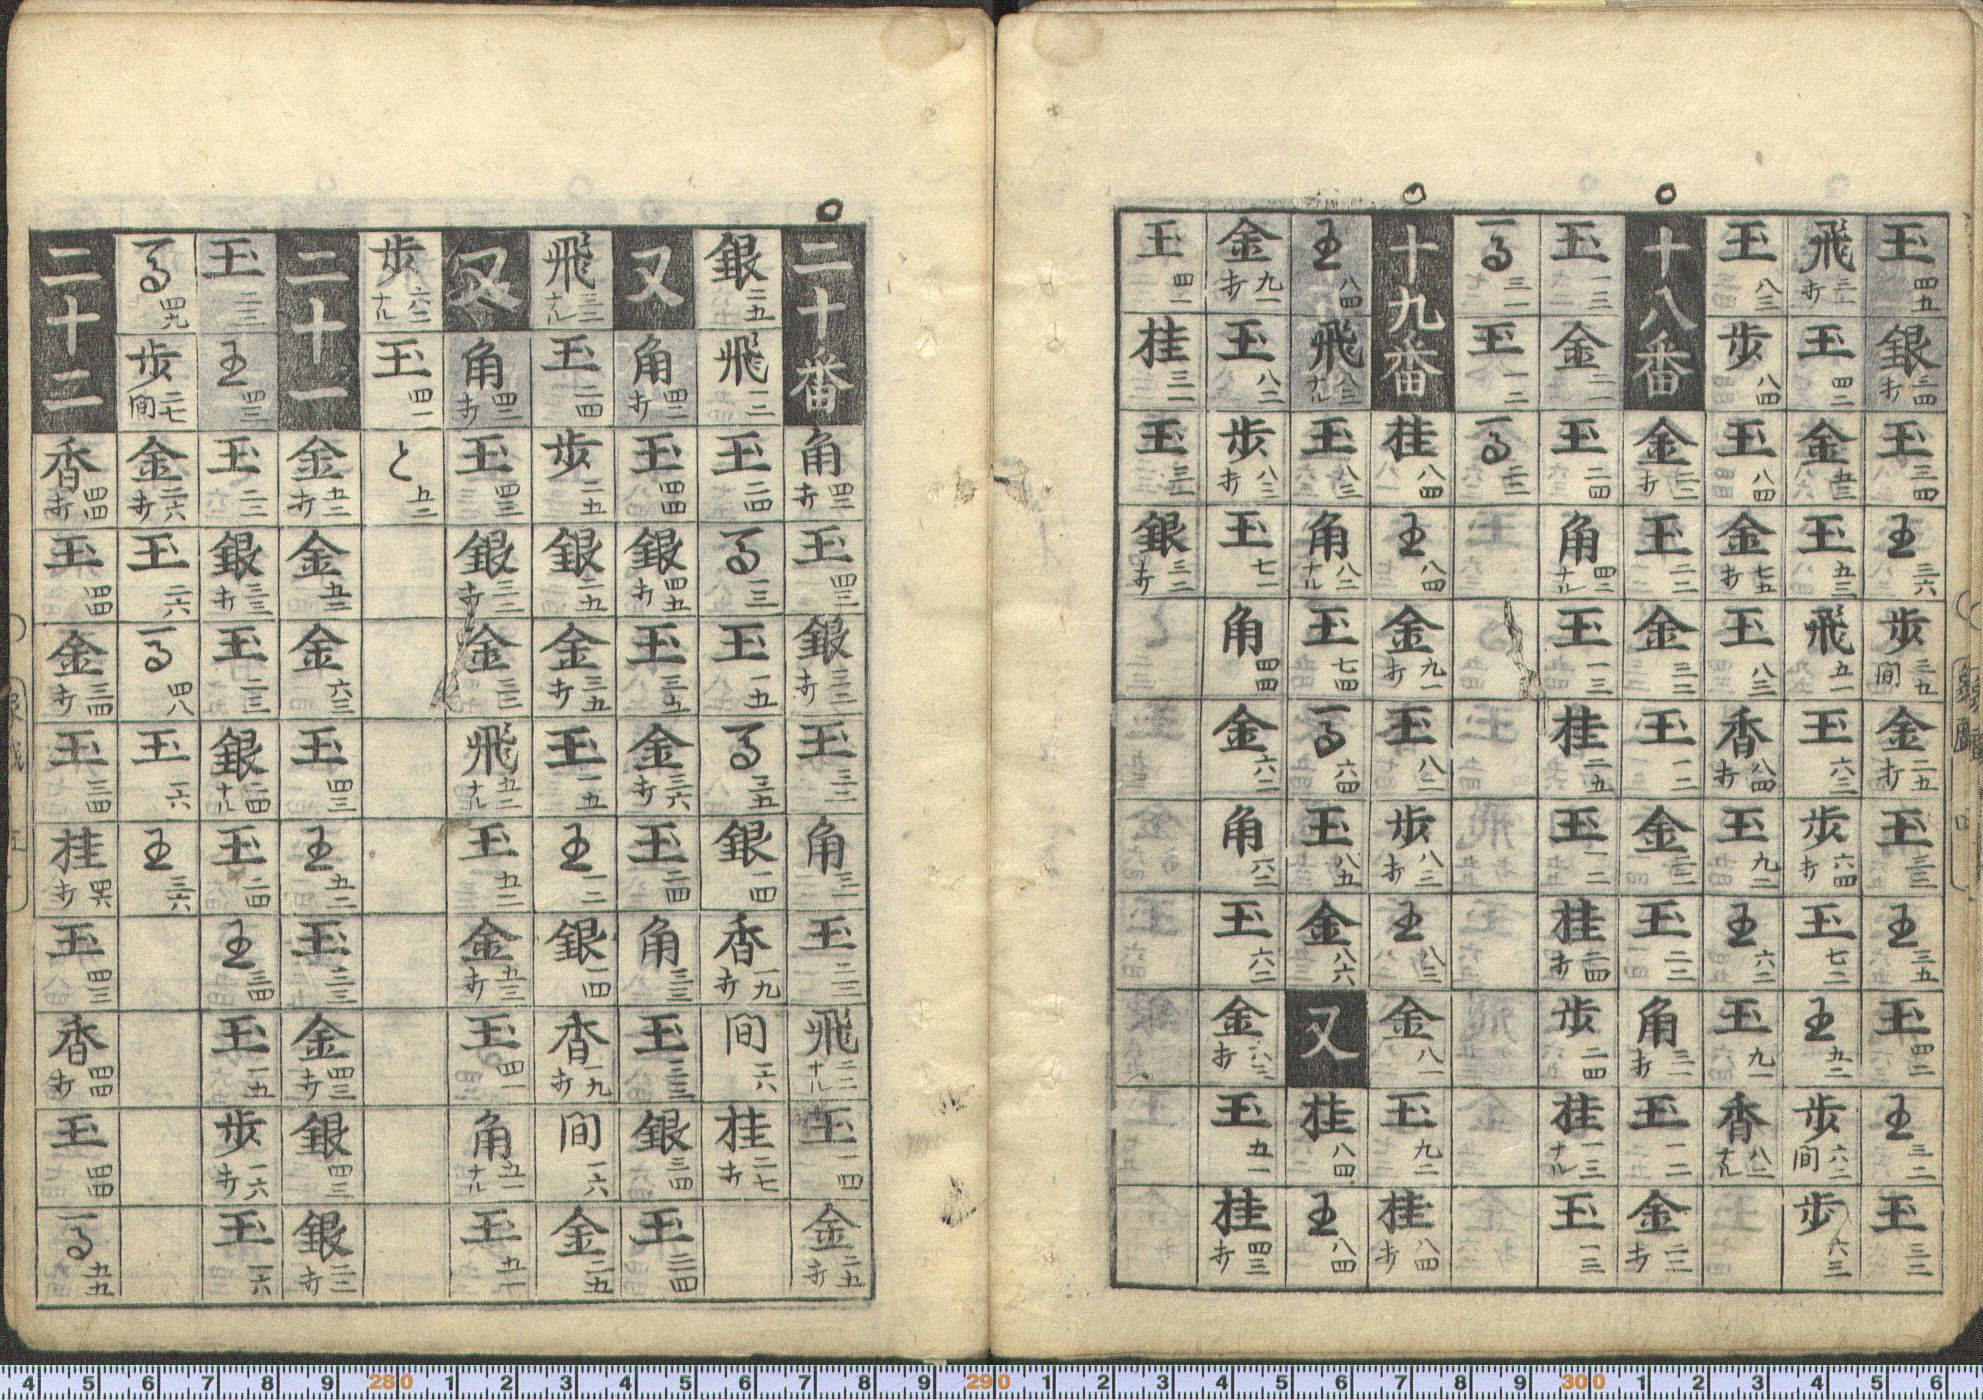 玉四五 銀三四打 玉三四 王三六 歩三五間 金二五打 玉三三 王三五 玉四二 王三二 玉三三
飛三二打 玉四二 金五三 玉五三 飛五一 玉六二 歩六四打 玉七二 王五二 歩六二間 歩六三
玉八三 歩八四 玉八四 金七五打 玉八三 香八四打 玉九二 王六二 玉九一 香八二ナル
十八番 金二二打 玉二二 金三二 玉一二 金二二 玉二二 角三一打 玉一二 金二二打
玉一三 金二一 玉二四 角四二ナル 玉一三 桂二五 玉一二 桂二四打 歩二四 桂一三ナル 玉一三
馬三一 玉一二 馬二二
十九番 桂八四 王八四 金九一打 玉八二 歩八三打 王八三 金八一 玉九二 桂八四打
王八四 飛八三ナル 玉八三 角八二ナル 玉七四 馬六四 玉八五 金八六 又 桂八四 王八四
金九一打 玉八二 歩八三打 玉七一 角四四 金六二 角六二 玉六二 金六三打 玉五一 桂四三打
玉四一 桂三一 玉三二 銀三二打
二十番 角四三打 玉四三 銀三二打 玉三三 角三一 玉二三 飛二二ナル 玉一四 金二五打
銀二五 飛一二 玉二四 馬一三 玉一五 馬三五 銀一四 香一九打 間一六 桂二七打
又 角四三打 玉四四 銀四五打 玉三五 金三六打 玉二四 角三三 玉三三 銀三四 玉二四
飛三二ナル 玉二四 歩二五 銀二五 金三五打 玉一五 王一二 銀一四 香一九打 間一六 金二五
又 角四三打 玉四三 銀三二打 金三三 飛五二ナル 玉五二 金五三打 玉四一 角五一ナル 玉五一
歩六二ナル 玉四一 と五二
二十一 金五三打 金五三 金六三 玉四三 王五二 玉三三 金四三打 銀四三 銀二二打
玉二三 王四三 玉二三 銀三三打 玉二三 銀二四ナル 玉二四 王三四 玉一五 歩一六打 玉一六
馬四九 歩二七間 金二六打 玉二六 馬四八 玉一六 王三六
二十二 香四四打 玉四四 金三四打 玉三四 桂四六打 玉四三 香四四打 玉四四 馬五五